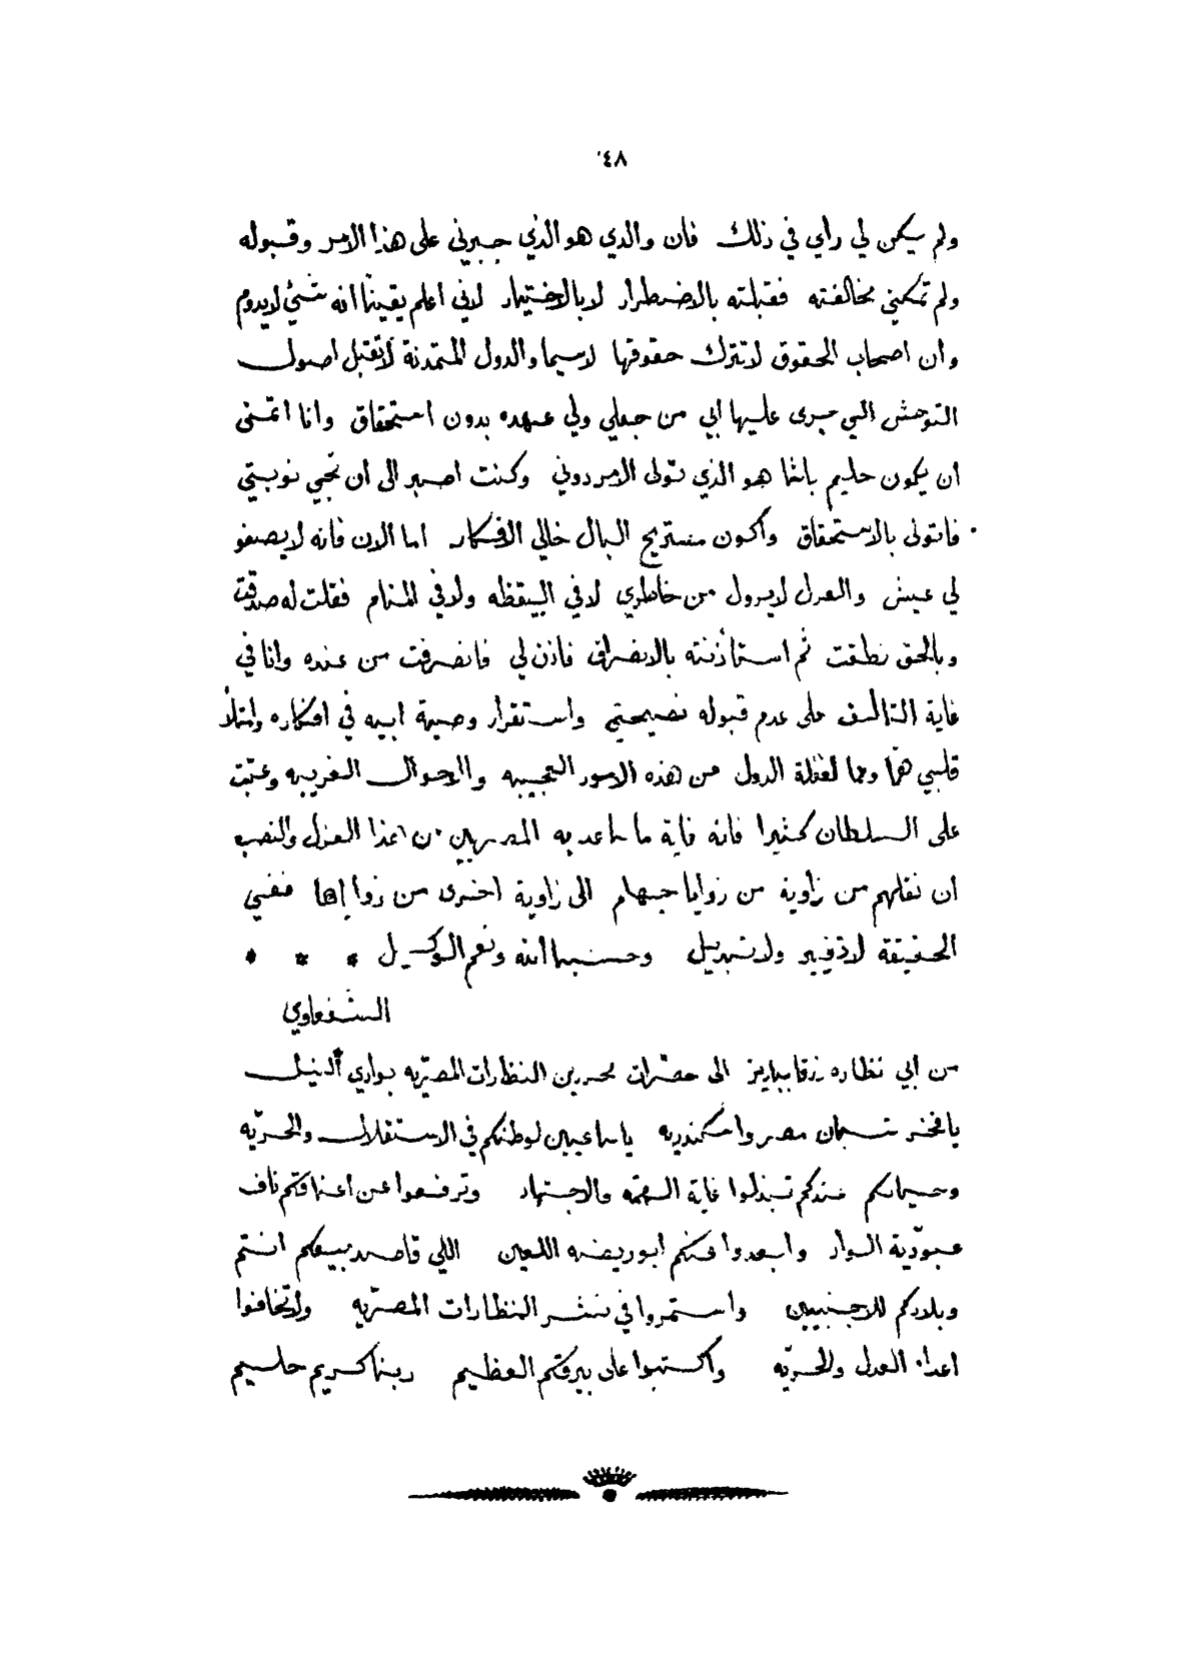 ٤٨
ولم يكن لي راي في ذلك فان والدي هو الذي جبرني على هذا الامر وقبوله
ولم تمكني مخالفته فقبلته بالاضطرار لا بالاختيار لاني اعلم يقينًا انه شئ لا يدوم
وان اصحاب الحقوق لا تترك حقوقها لاسيما والدول المتمدنة لا تقبل اصول
التوحش التي جرى عليها ابي من جعلي ولي عهده بدون استحقاق وانا اتمنى
ان يكون حليم باشا هو الذي تولى الامر دوني وكنت اصبر الى ان تجي نوبتي
فاتولى بالاستحقاق واكون مستريح البال خالي الافكار اما الان فانه لا يصفو
لي عيش والعزل لا يزول من خاطري لا في اليقظه ولا في المنام فقلت له صدقت
وبالحق نطقت ثم استأذنته بالانصراف فاذن لي فانصرفت من عنده وانا في
غاية التاسف على عدم قبوله نصيحتي واستقرار وصية ابيه في افكاره وامتلأ
قلبي همًا وغما لغفلة الدول من هذه الامور العجيبه والاحوال الغريبه وعتبت
على السلطان كثيرا فانه غاية ما ساعد به المصريين من هذا العزل والنصب
ان نقلهم من زاوية من زوايا جهنم الى زاوية اخرى من زواياها ففي
الحقيقة لا تغيير ولا تبديل وحسبنا الله ونعم الوكيل * * *
الشفعاوي
من ابي نظاره زرقا بباريز الى حضرات محررين النظارات المصريّه بوادي النيل
يا فخر شبان مصر واسكندريه يا ساعيين لوطنكم في الاستقلال والحريّه
وحياتكم عندكم تبذلوا غاية الهمّه والاجتهاد وترفعوا عن اعناقكم ناف
عبوديّة وابعدوا عنكم ابو ريضه اللعين اللي قاصد بيعكم انتم
وبلادكم للاجنبيين واستمروا في نشر النظارات المصريّه ولا تخافوا
اعداء العدل والحريّه واكتبوا على بيرقكم العظيم ربنا كريم حليم